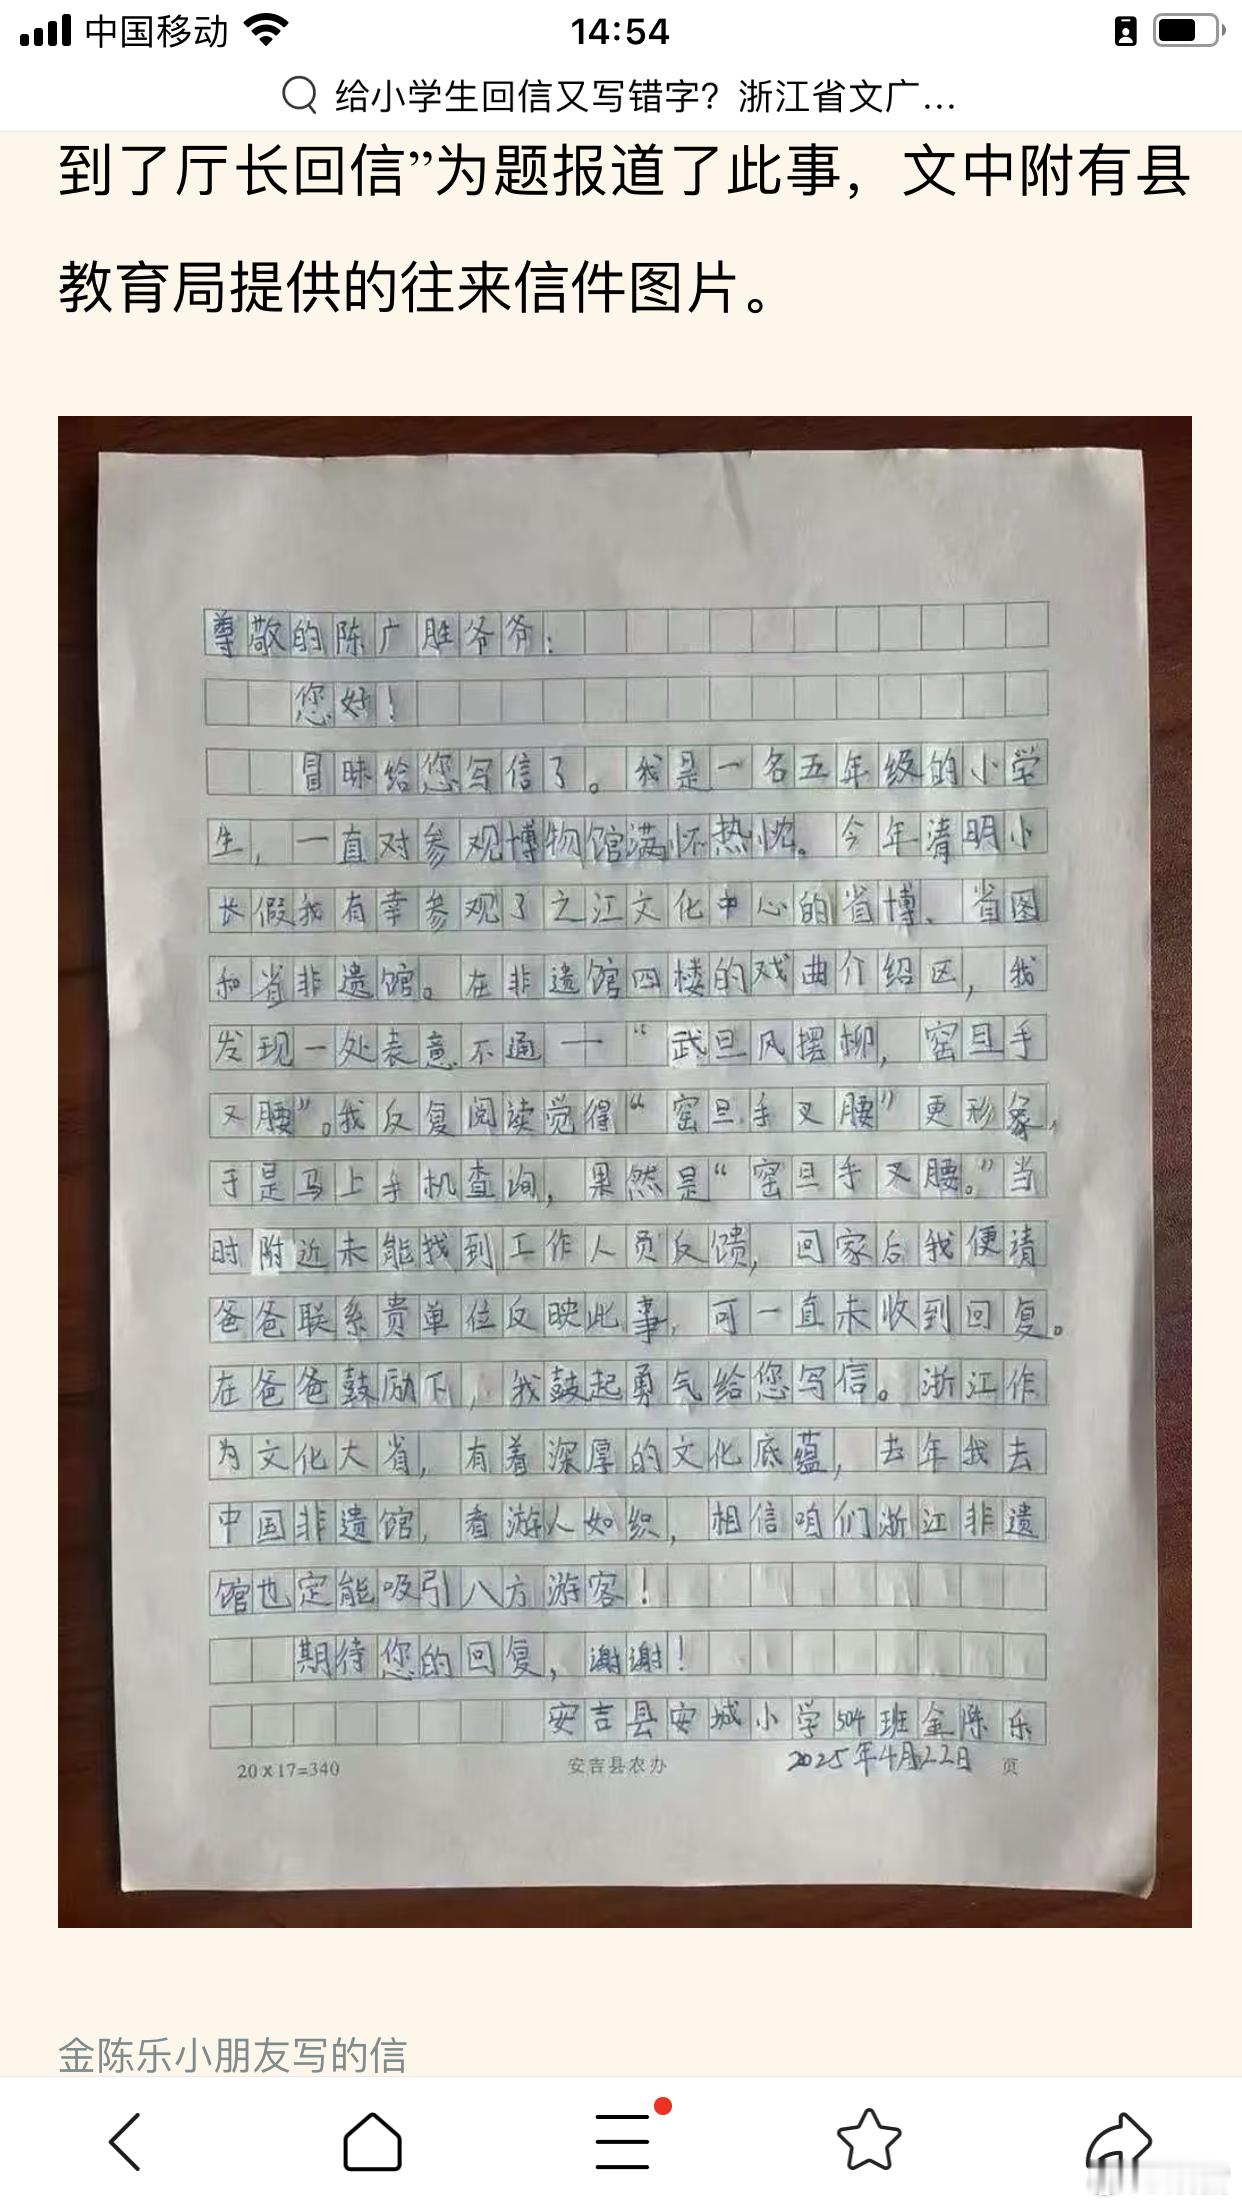 中国移动 14:54
给小学生回信又写错字？浙江省文广...
到了厅长回信”为题报道了此事，文中附有县
教育局提供的往来信件图片。
尊敬的陈广胜爷爷：
您好！
冒昧给您写信了。我是一名五年级的小学
生，一直对参观博物馆满怀热忱。今年清明小
长假我有幸参观了之江文化中心的省博、省图
和省非遗馆。在非遗馆四楼的戏曲介绍区，我
发现一处表意不通——“武旦风摆柳，窑旦手
又腰”。我反复阅读觉得“窑旦手叉腰”更形象，
于是马上手机查询，果然是“窑旦手叉腰。”当
时附近未能找到工作人员反馈，回家后我便请
爸爸联系贵单位反映此事，可一直未收到回复。
在爸爸鼓励下，我鼓起勇气给您写信。浙江作
为文化大省，有着深厚的文化底蕴，去年我去
中国非遗馆，看游人如织，相信咱们浙江非遗
馆也定能吸引八方游客！
期待您的回复，谢谢！
安吉县安城小学504班金陈乐
2025年4月22日
20×17=340 安吉县农办 页
金陈乐小朋友写的信